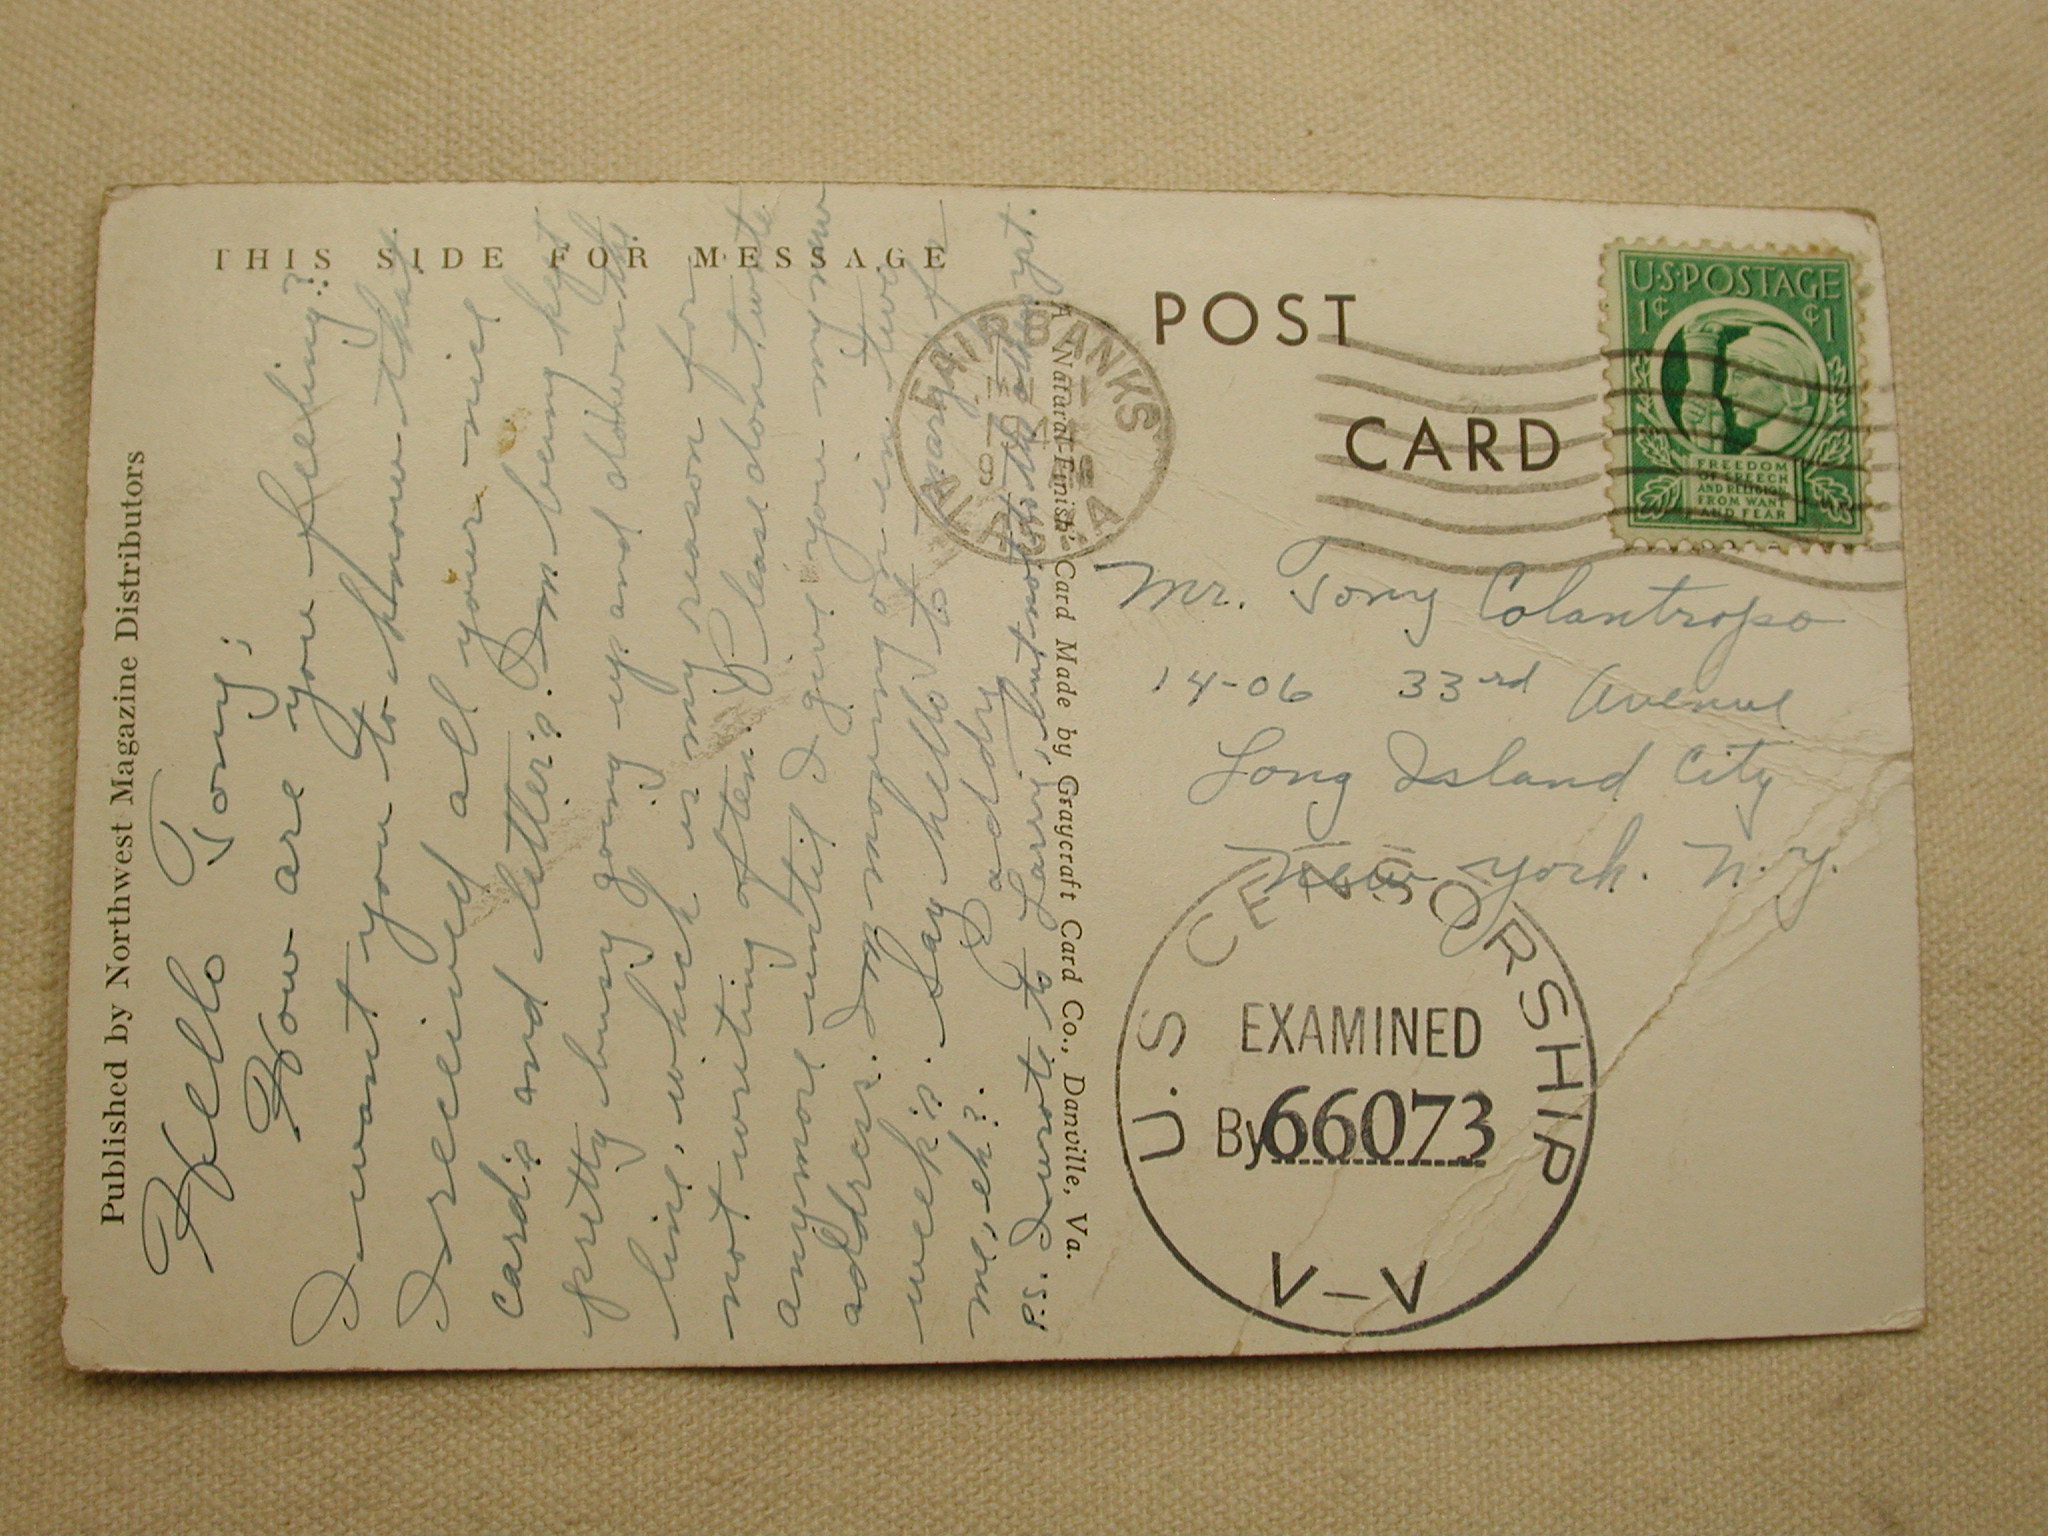 THIS SIDE FOR MESSAGE
Published by Northwest Magazine Distributors
Hello Tony;
How are you feeling?
I want you to know that
I received all your nice
cards and letters. I'm being kept
pretty busy going up and down the
line, which is my reason for
not writing often. Please don't write
anymore until I give you my new
address. I'm home in two
weeks. Say hello to
me, eh?.
P.S. I wrote to Larry,
A Natural-Finish Card Made by Graycraft Card Co., Danville, Va.
FAIRBANKS
ALASKA
POST
CARD
U·S·POSTAGE
1¢ ¢1
FREEDOM
OF SPEECH
AND RELIGION
FROM WANT
AND FEAR
Mr. Tony Colantropo
14-06 33rd Avenue
Long Island City
New York. N.Y.
U.S CENSORSHIP
EXAMINED
By 66073
V—V